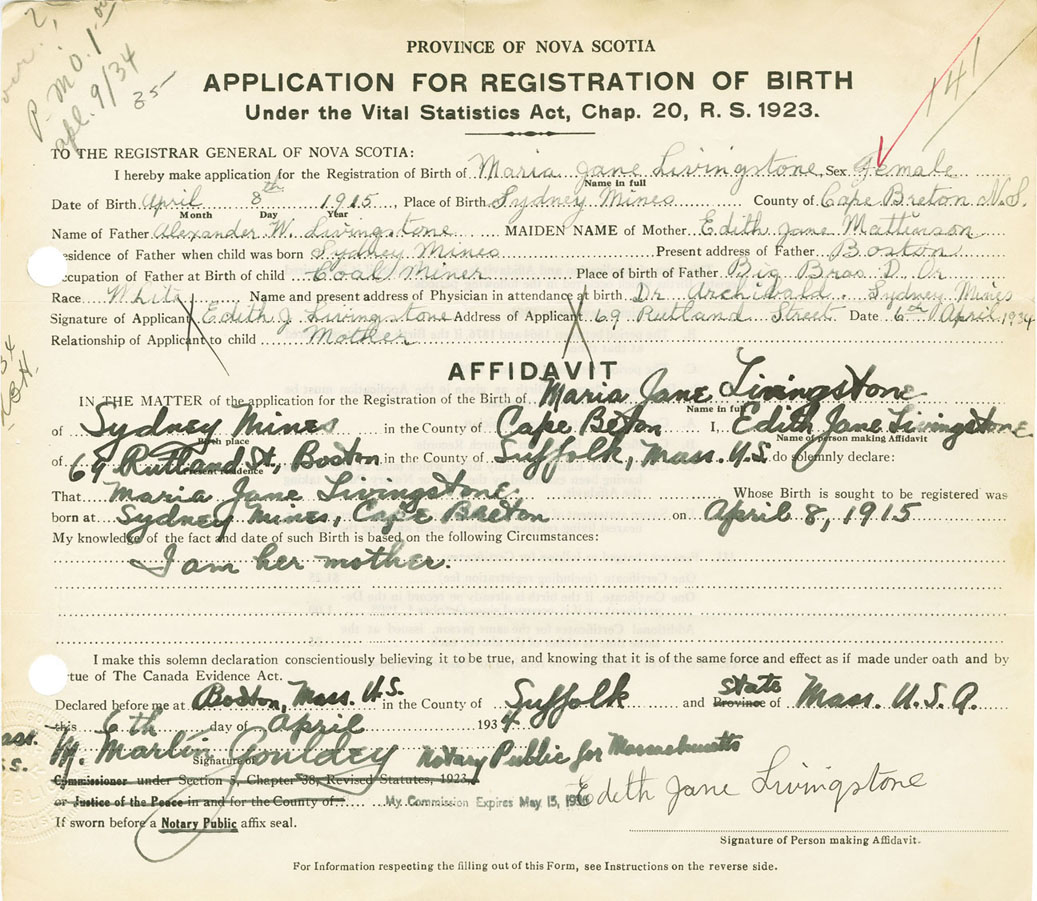 over.
P. M. O. 1.00
apl. 9/34
35
141
PROVINCE OF NOVA SCOTIA
APPLICATION FOR REGISTRATION OF BIRTH
Under the Vital Statistics Act, Chap. 20, R. S. 1923.
TO THE REGISTRAR GENERAL OF NOVA SCOTIA:
I hereby make application for the Registration of Birth of Maria Jane Livingstone, Sex Female
Name in full
Date of Birth April 8th 1915, Place of Birth Sydney Mines County of Cape Breton N.S.
Month Day Year
Name of Father Alexander W. Livingstone MAIDEN NAME of Mother Edith Jane Mattinson
esidence of Father when child was born Sydney Mines Present address of Father Boston
ccupation of Father at Birth of child Coal Miner Place of birth of Father Big Bras D. Or
Race White Name and present address of Physician in attendance at birth Dr Archibald. Sydney Mines
Signature of Applicant Edith J. Livingstone Address of Applicant 69 Rutland Street Date 6th April 1934
Relationship of Applicant to child Mother
AFFIDAVIT
IN THE MATTER of the application for the Registration of the Birth of Maria Jane Livingstone
Name in full
of Sydney Mines in the County of Cape Beton I, Edith Jane Livingstone
Birth place Name of person making Affidavit
of 69 Rutland St., Boston in the County of Suffolk, Mass. U.S. do solemnly declare:
Present residence
That Maria Jane Livingstone Whose Birth is sought to be registered was
born at Sydney Mines, Cape Breton on April 8, 1915
My knowledge of the fact and date of such Birth is based on the following Circumstances:
I am her mother.
I make this solemn declaration conscientiously believing it to be true, and knowing that it is of the same force and effect as if made under oath and by
rtue of The Canada Evidence Act.
Declared before me at Boston, Mass. U.S. in the County of Suffolk and Province of State Mass. U.S.A.
this 6th day of April 1934
M. Martin Gouldey Notary Public for Massachusetts
Signature of
Commissioner under Section 5, Chapter 38, Revised Statutes, 1923
or Justice of the Peace in and for the County of My Commission Expires May 15, 1936
Edith Jane Livingstone
If sworn before a Notary Public affix seal.
Signature of Person making Affidavit.
For Information respecting the filling out of this Form, see Instructions on the reverse side.